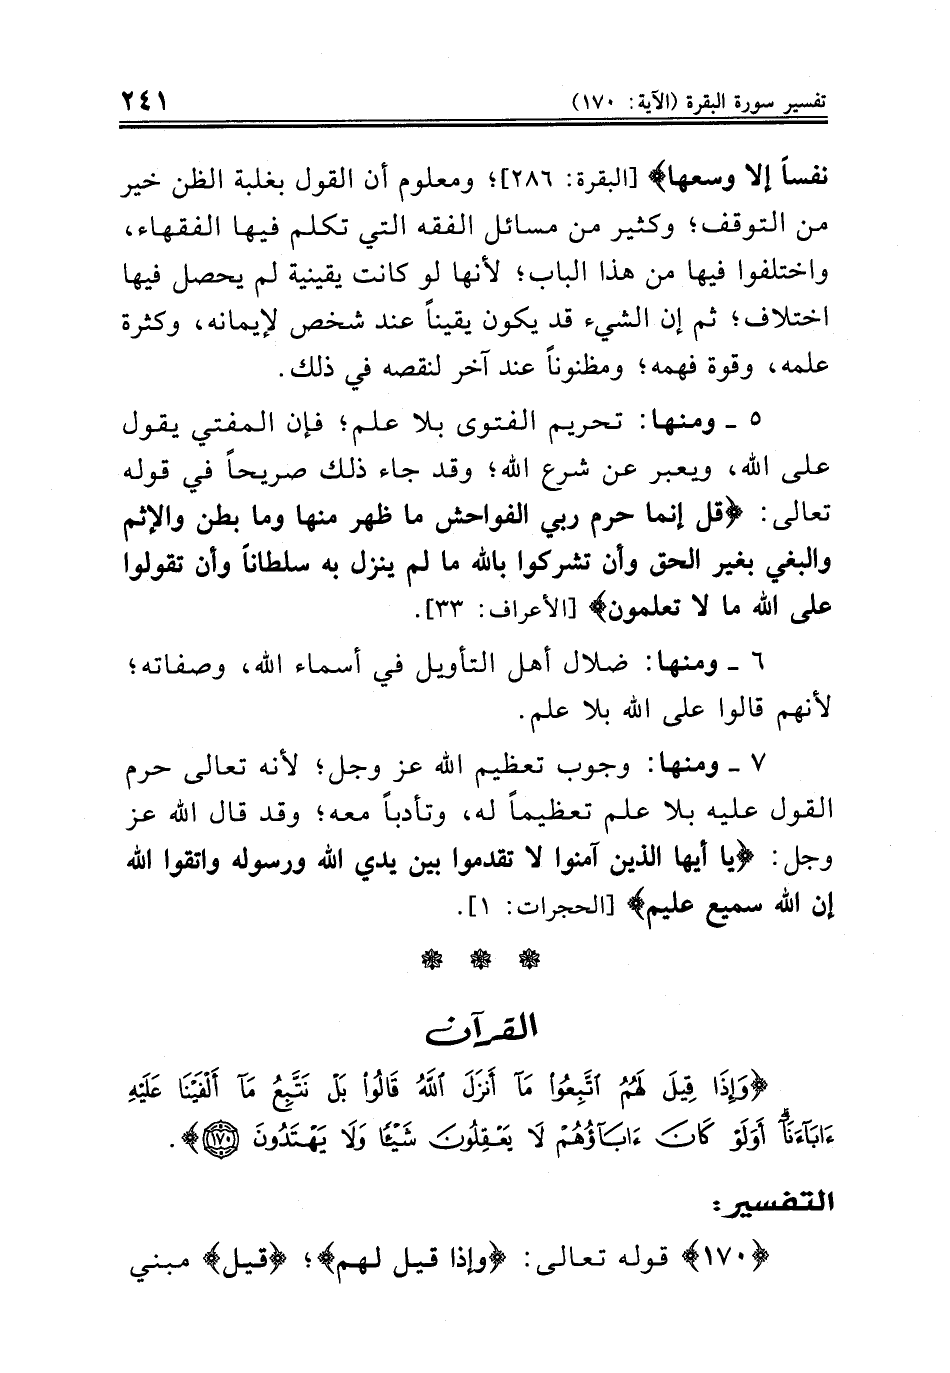 تفسير سورة البقرة (الآية: ١٧٠) ٢٤١
نفساً إلا وسعها﴾ [البقرة: ٢٨٦]؛ ومعلوم أن القول بغلبة الظن خير
من التوقف؛ وكثير من مسائل الفقه التي تكلم فيها الفقهاء،
واختلفوا فيها من هذا الباب؛ لأنها لو كانت يقينية لم يحصل فيها
اختلاف؛ ثم إن الشيء قد يكون يقيناً عند شخص لإيمانه، وكثرة
علمه، وقوة فهمه؛ ومظنوناً عند آخر لنقصه في ذلك.
٥ ـ ومنها: تحريم الفتوى بلا علم؛ فإن المفتي يقول
على الله، ويعبر عن شرع الله؛ وقد جاء ذلك صريحاً في قوله
تعالى: ﴿قل إنما حرم ربي الفواحش ما ظهر منها وما بطن والإثم
والبغي بغير الحق وأن تشركوا بالله ما لم ينزل به سلطاناً وأن تقولوا
على الله ما لا تعلمون﴾ [الأعراف: ٣٣].
٦ ـ ومنها: ضلال أهل التأويل في أسماء الله، وصفاته؛
لأنهم قالوا على الله بلا علم.
٧ ـ ومنها: وجوب تعظيم الله عز وجل؛ لأنه تعالى حرم
القول عليه بلا علم تعظيماً له، وتأدباً معه؛ وقد قال الله عز
وجل: ﴿يا أيها الذين آمنوا لا تقدموا بين يدي الله ورسوله واتقوا الله
إن الله سميع عليم﴾ [الحجرات: ١].
القرآن
﴿وَإِذَا قِيلَ لَهُمُ ٱتَّبِعُوا۟ مَآ أَنزَلَ ٱللَّهُ قَالُوا۟ بَلْ نَتَّبِعُ مَآ أَلْفَيْنَا عَلَيْهِ
ءَابَآءَنَآ ۗ أَوَلَوْ كَانَ ءَابَآؤُهُمْ لَا يَعْقِلُونَ شَيْـًٔا وَلَا يَهْتَدُونَ ١٧٠﴾.
التفسير:
﴿١٧٠﴾ قوله تعالى: ﴿وإذا قيل لهم﴾؛ ﴿قيل﴾ مبني